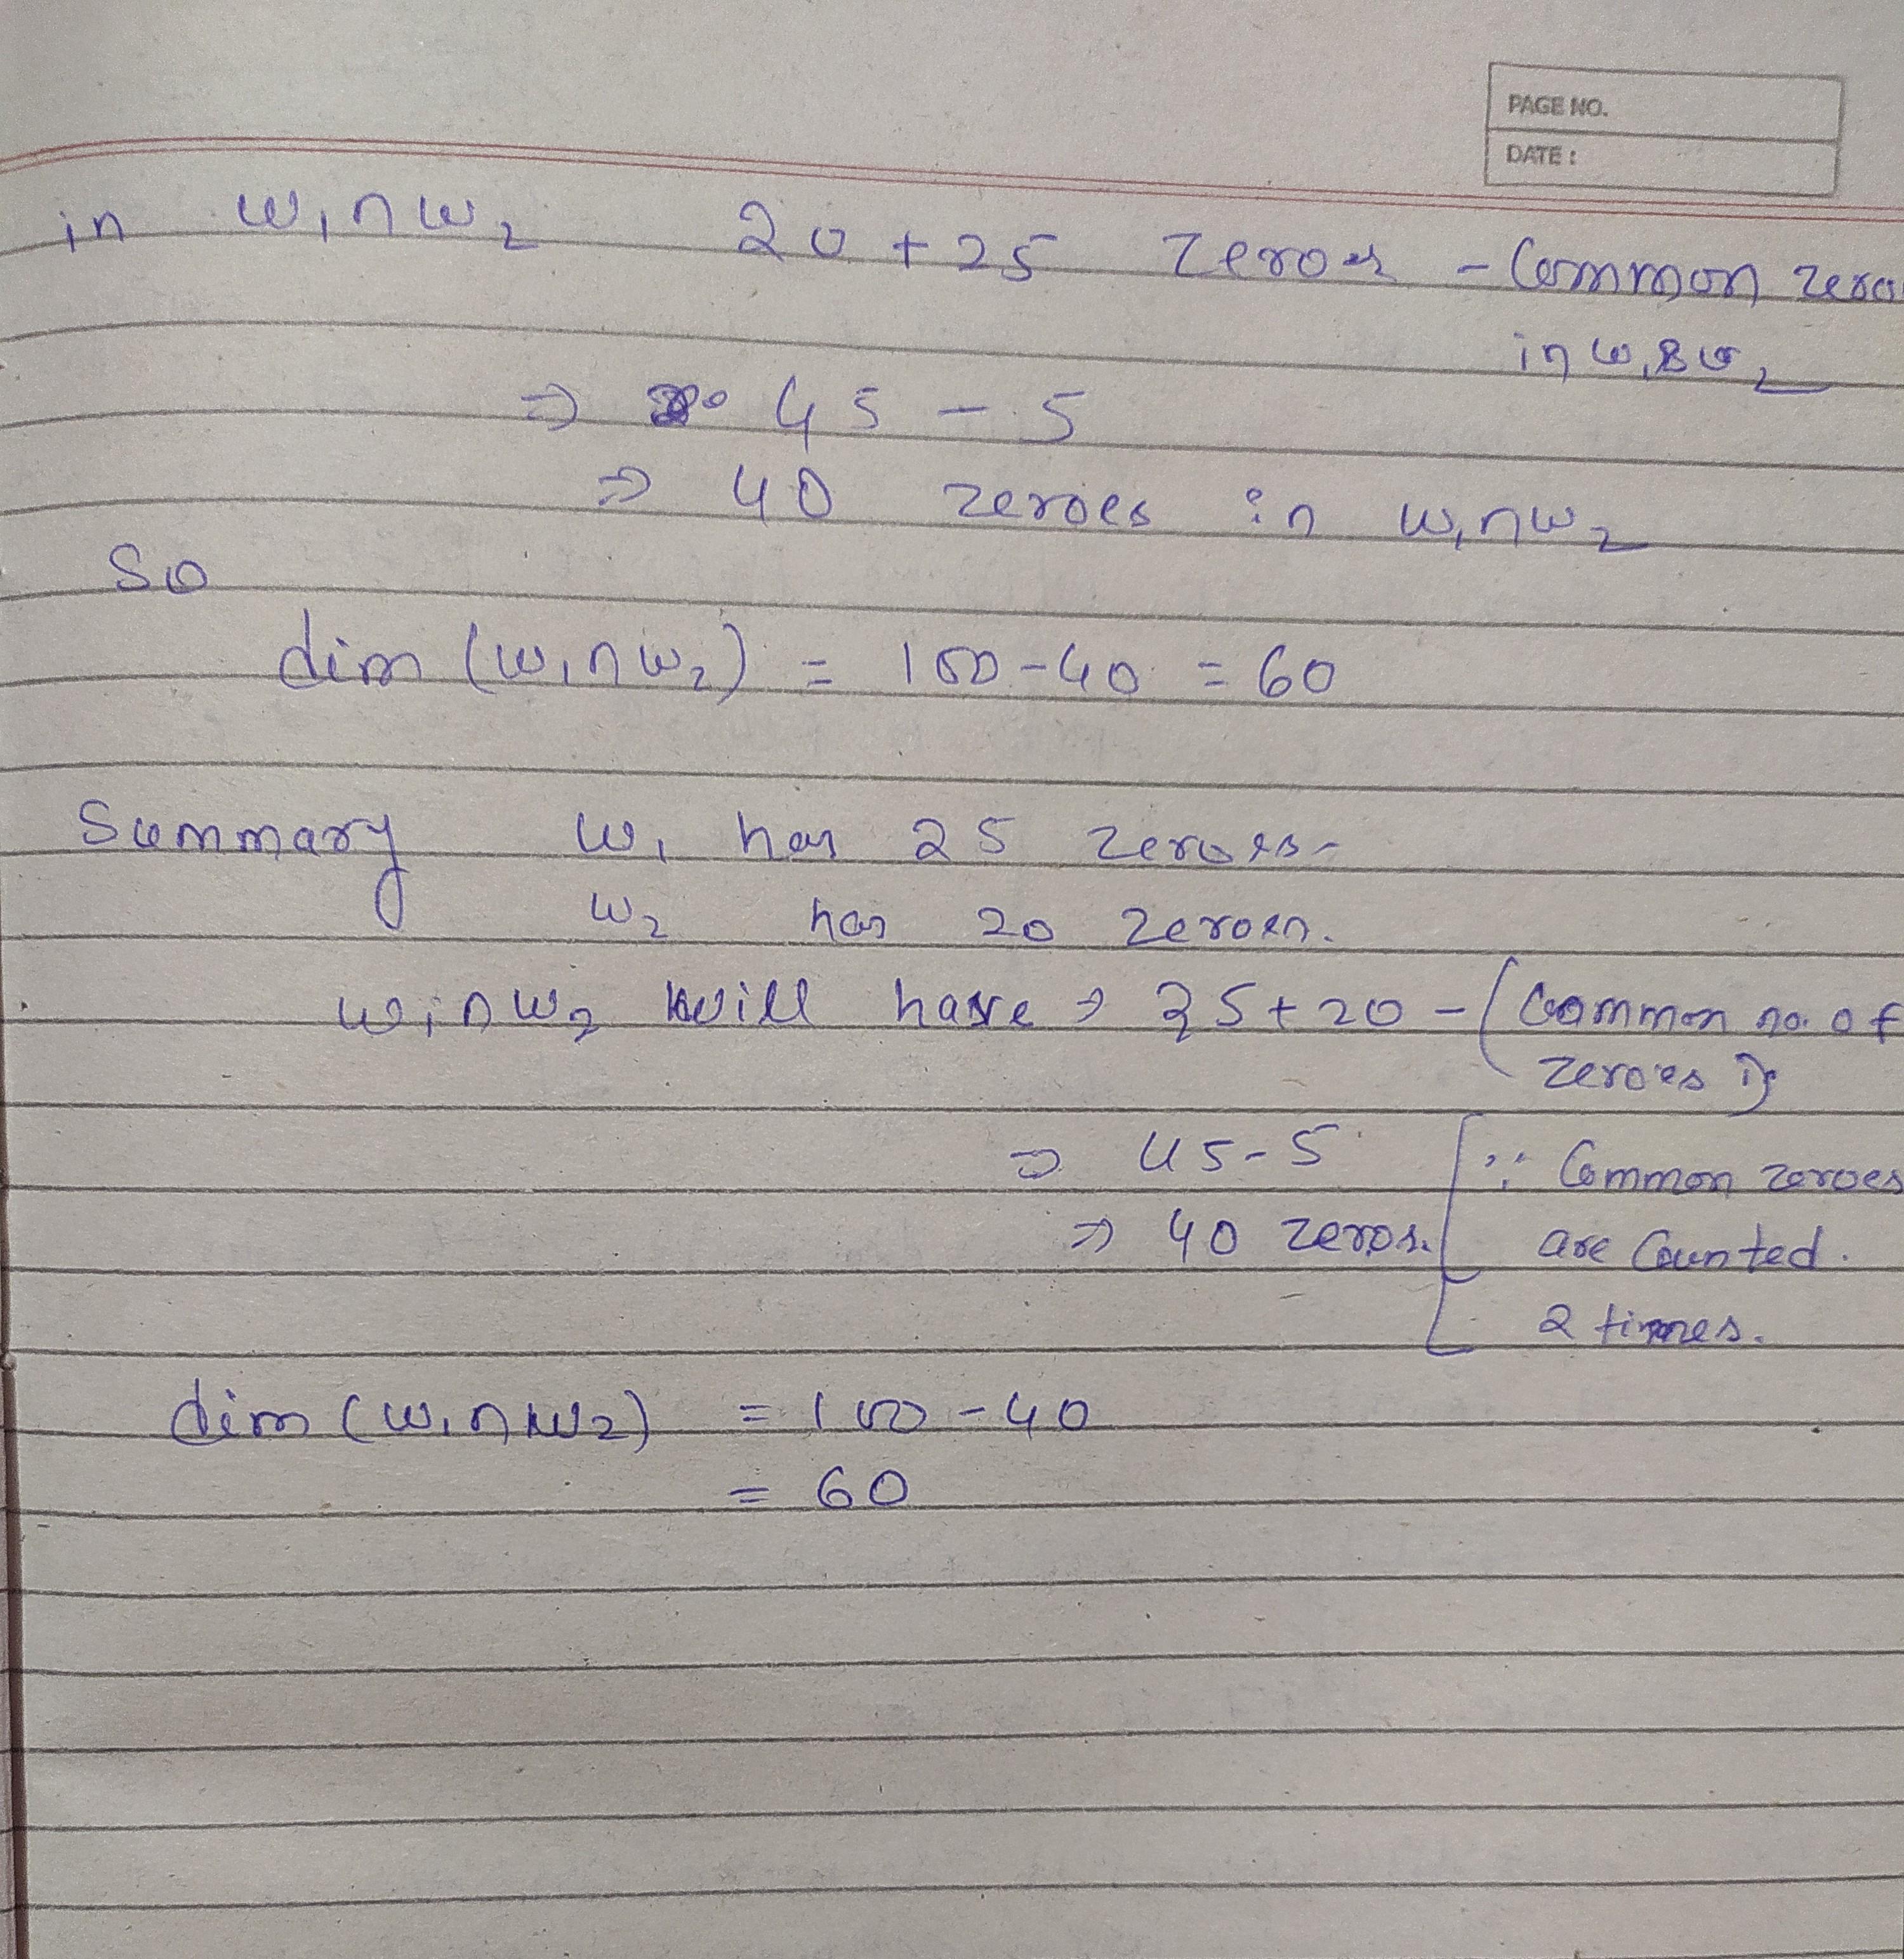 PAGE NO.
DATE :
in W₁∩W₂ 20 + 25 Zeroes - Common zero
in W₁ & W₂
⇒ 45 - 5
⇒ 40 zeroes in W₁∩W₂
So
dim (W₁∩W₂) = 100 - 40 = 60
Summary W₁ has 25 zeroes.
W₂ has 20 zeroes.
W₁∩W₂ will have → 25 + 20 - (Common no. of
zeroes)
⇒ 45 - 5 [∵ Common zeroes
⇒ 40 zeros. are Counted.
2 times.
dim (W₁∩W₂) = 100 - 40
= 60